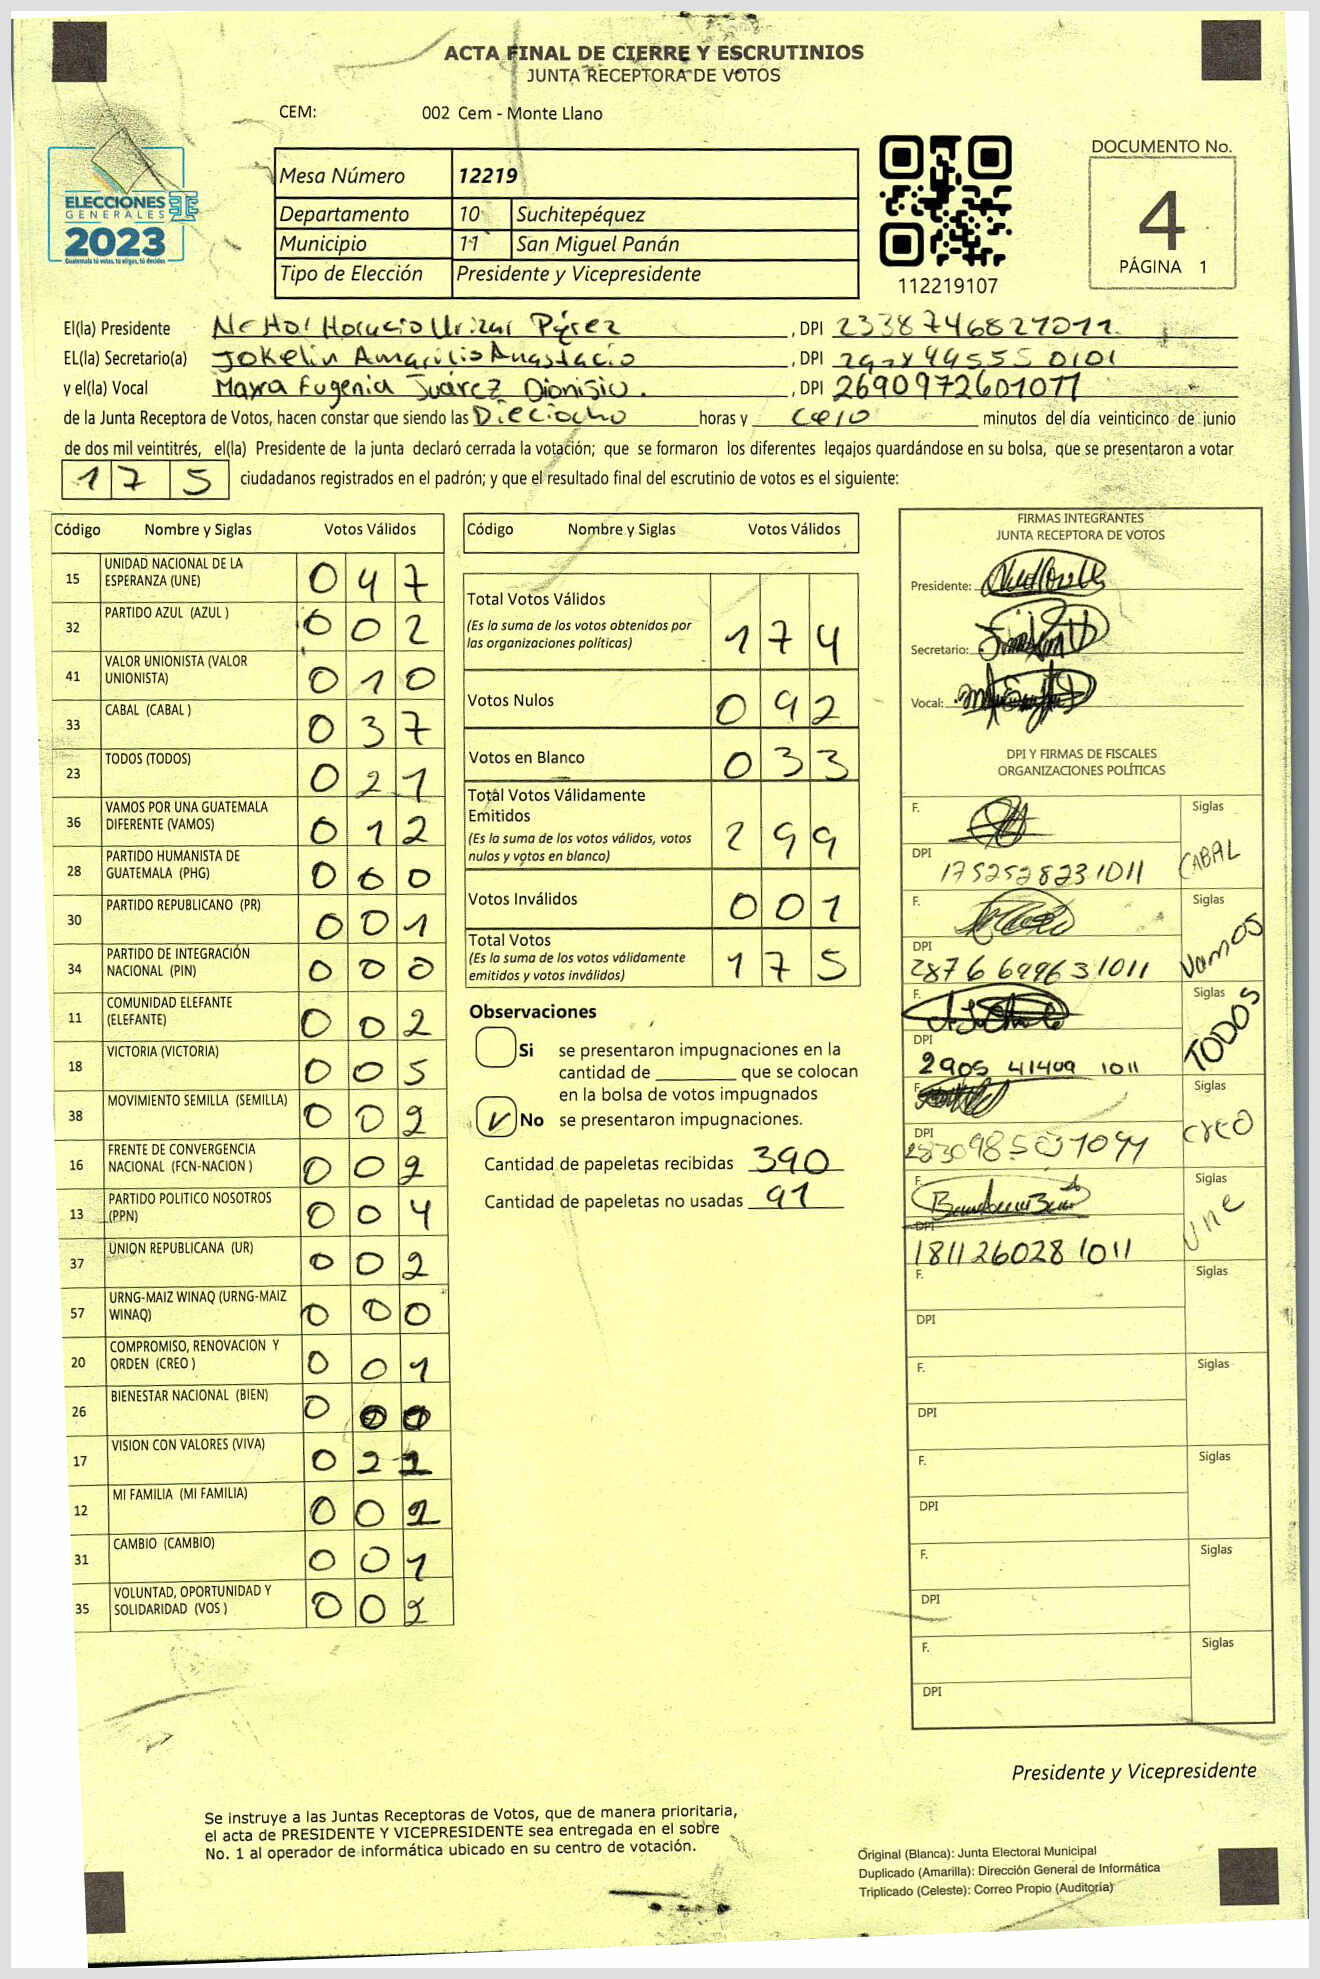 ACTA FINAL DE CIERRE Y ESCRUTINIOS
JUNTA RECEPTORA DE VOTOS
CEM: 002 Cem - Monte Llano
ELECCIONES
GENERALES
2023
Guatemala tú votas, tú eliges, tú decides
Mesa Número 12219
Departamento 10 Suchitepéquez
Municipio 11 San Miguel Panán
Tipo de Elección Presidente y Vicepresidente
112219107
DOCUMENTO No.
4
PÁGINA 1
El(la) Presidente Horacio Urizar Pérez, DPI 2338746821011
EL(la) Secretario(a) Jokelin Amarilis Anastacio, DPI
y el(la) Vocal Mayra Eugenia Juárez Dionisio., DPI 2690972601011
de la Junta Receptora de Votos, hacen constar que siendo las Dieciocho horas y cero minutos del día veinticinco de junio
de dos mil veintitrés, el(la) Presidente de la junta declaró cerrada la votación; que se formaron los diferentes legajos guardándose en su bolsa, que se presentaron a votar
175 ciudadanos registrados en el padrón; y que el resultado final del escrutinio de votos es el siguiente:
Código Nombre y Siglas Votos Válidos
15 UNIDAD NACIONAL DE LA
ESPERANZA (UNE) 047
32 PARTIDO AZUL (AZUL ) 002
41 VALOR UNIONISTA (VALOR
UNIONISTA) 010
33 CABAL (CABAL ) 037
23 TODOS (TODOS) 021
36 VAMOS POR UNA GUATEMALA
DIFERENTE (VAMOS) 012
28 PARTIDO HUMANISTA DE
GUATEMALA (PHG) 000
30 PARTIDO REPUBLICANO (PR) 001
34 PARTIDO DE INTEGRACIÓN
NACIONAL (PIN) 000
11 COMUNIDAD ELEFANTE
(ELEFANTE) 002
18 VICTORIA (VICTORIA) 005
38 MOVIMIENTO SEMILLA (SEMILLA) 002
16 FRENTE DE CONVERGENCIA
NACIONAL (FCN-NACION ) 002
13 PARTIDO POLITICO NOSOTROS
(PPN) 004
37 UNION REPUBLICANA (UR) 002
57 URNG-MAIZ WINAQ (URNG-MAIZ
WINAQ) 000
20 COMPROMISO, RENOVACION Y
ORDEN (CREO ) 001
26 BIENESTAR NACIONAL (BIEN) 0
17 VISION CON VALORES (VIVA) 02
12 MI FAMILIA (MI FAMILIA) 00
31 CAMBIO (CAMBIO) 001
35 VOLUNTAD, OPORTUNIDAD Y
SOLIDARIDAD (VOS ) 002
Código Nombre y Siglas Votos Válidos
Total Votos Válidos
(Es la suma de los votos obtenidos por
las organizaciones políticas) 174
Votos Nulos 092
Votos en Blanco 033
Total Votos Válidamente
Emitidos
(Es la suma de los votos válidos, votos
nulos y votos en blanco) 299
Votos Inválidos 001
Total Votos
(Es la suma de los votos válidamente
emitidos y votos inválidos) 175
Observaciones
Si se presentaron impugnaciones en la
cantidad de ________ que se colocan
en la bolsa de votos impugnados
No se presentaron impugnaciones.
Cantidad de papeletas recibidas 390
Cantidad de papeletas no usadas 91
FIRMAS INTEGRANTES
JUNTA RECEPTORA DE VOTOS
Presidente:
Secretario:
Vocal:
DPI Y FIRMAS DE FISCALES
ORGANIZACIONES POLÍTICAS
F. Siglas
DPI 1752528231011 CABAL
F. Siglas
DPI 2876699631011 Vamos
F. Siglas
DPI 2905 41409 1011 TODOS
F. Siglas
DPI creo
F. Siglas
DPI 1811260281011 une
F. Siglas
DPI
F. Siglas
DPI
F. Siglas
DPI
F. Siglas
DPI
F. Siglas
DPI
Presidente y Vicepresidente
Se instruye a las Juntas Receptoras de Votos, que de manera prioritaria,
el acta de PRESIDENTE Y VICEPRESIDENTE sea entregada en el sobre
No. 1 al operador de informática ubicado en su centro de votación.
Original (Blanca): Junta Electoral Municipal
Duplicado (Amarilla): Dirección General de Informática
Triplicado (Celeste): Correo Propio (Auditoría)